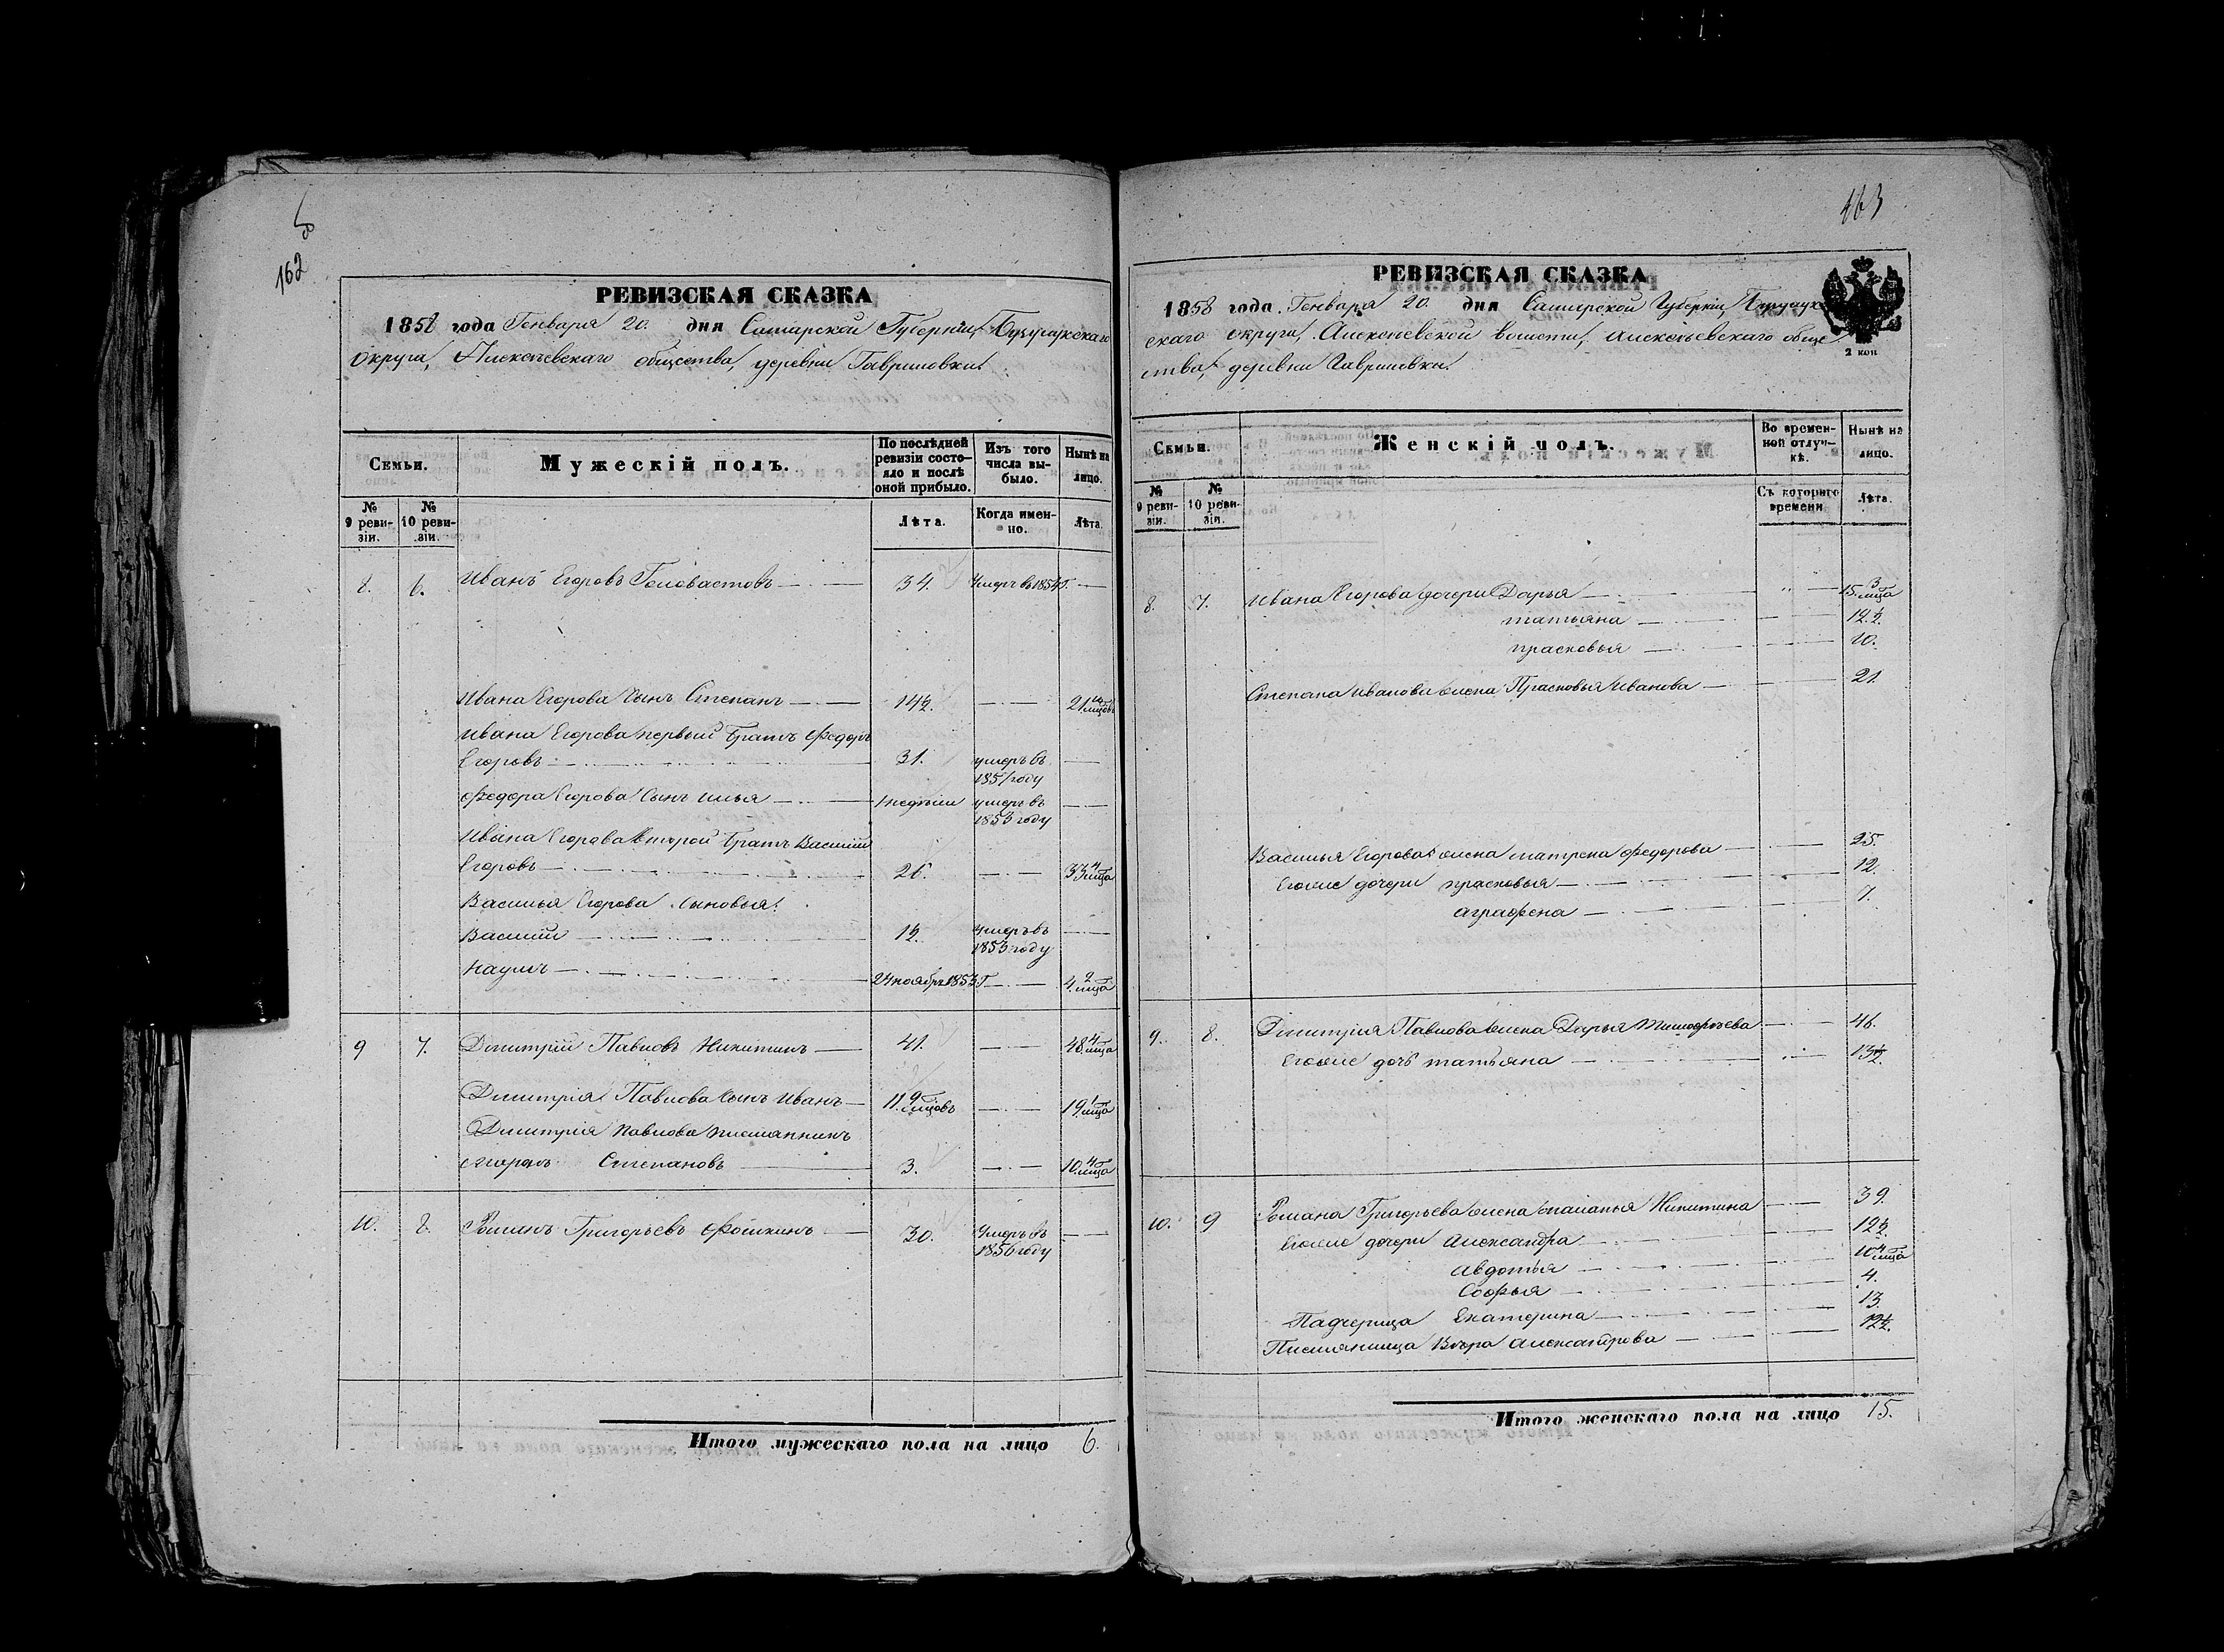 162
РЕВИЗСКАЯ СКАЗКА
1858 года Генваря 20. дня Самарской Губерніи, Бузулукскаго
Округа, Алексѣевскаго общества, деревни Гавриловки.
Семьи.
Мужескій полъ.
По послѣдней ревизіи состояло и послѣ оной прибыло.
Изъ того числа выбыло.
Нынѣ на лицо.
№ 9 ревизіи.
№ 10 ревизіи.
Лѣта.
Когда именно.
Лѣта.
8. 6. Иванъ Егоровъ Головастовъ 34. Умеръ въ 1854 Г.
Ивана Егорова Сынъ Степанъ 14½. 21
Ивана Егорова первый Братъ Федоръ
Егоровъ 31. умеръ въ 1851 году
Федора Егорова Сынъ Илья 1 недѣли умеръ въ 1853 году
Ивана Егорова второй Братъ Василій
Егоровъ 26. 33 4 м-ца
Василья Егорова Сыновья:
Василій 1½. Умеръ въ 1853 году
Наумъ 24 ноября 1853 Г 4 2 м-ца
9 7. Дмитрій Павловъ Никитинъ 41. 48 4 м-ца
Дмитрія Павлова Сынъ Иванъ 11. 9 м-цовъ 19 1 м-ца
Дмитрія Павлова племянникъ
Степановъ 3. 10 4 м-ца
10. 8. Романъ Григорьевъ Фомкинъ 30. Умеръ въ 1856 году
Итого мужескаго пола на лицо 6.
163
РЕВИЗСКАЯ СКАЗКА
1858 года Генваря 20. дня Самарской Губерніи, Бузулук
скаго Округа, Алексѣевской волости, Алексѣевскаго обще
ства, деревни Гавриловки.
2 коп
Семьи.
Женскій полъ.
Во временной отлучкѣ.
Нынѣ на лицо.
№ 9 ревизіи.
№ 10 ревизіи.
Съ котораго времени
Лѣта.
8. 7. Ивана Егорова дочери Дарья 15. 3 м-ца
татьяна 12½.
прасковья 10.
Степана Иванова жена Прасковья Иванова 21.
Василья Егорова жена матрена Федорова 25.
Егоже дочери прасковья 12.
аграфена 7.
9. 8. Дмитрія Павлова жена Дарья Тимофѣева 46.
Егоже дочь татьяна 13½.
10. 9 Романа Григорьева жена Маланья Никитина 39.
Егоже дочери Александра 12½.
Авдотья 10 4 м-ца
Софья 4.
Падчерица Екатерина 13.
Племянница Вѣра Александрова 12½.
Итого женскаго пола на лицо 15.